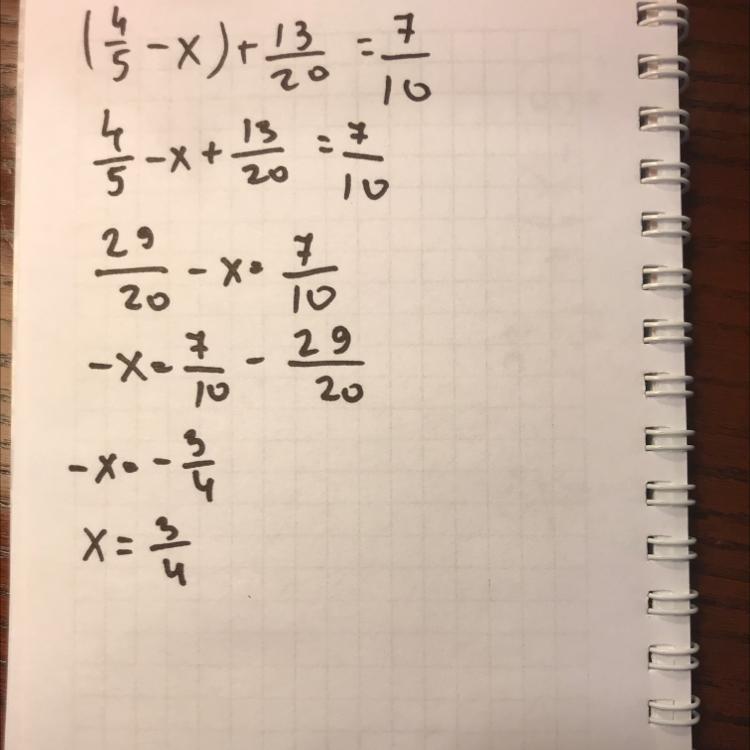 (4/5 - x) + 13/20 = 7/10
4/5 - x + 13/20 = 7/10
29/20 - x = 7/10
-x = 7/10 - 29/20
-x = - 3/4
x = 3/4